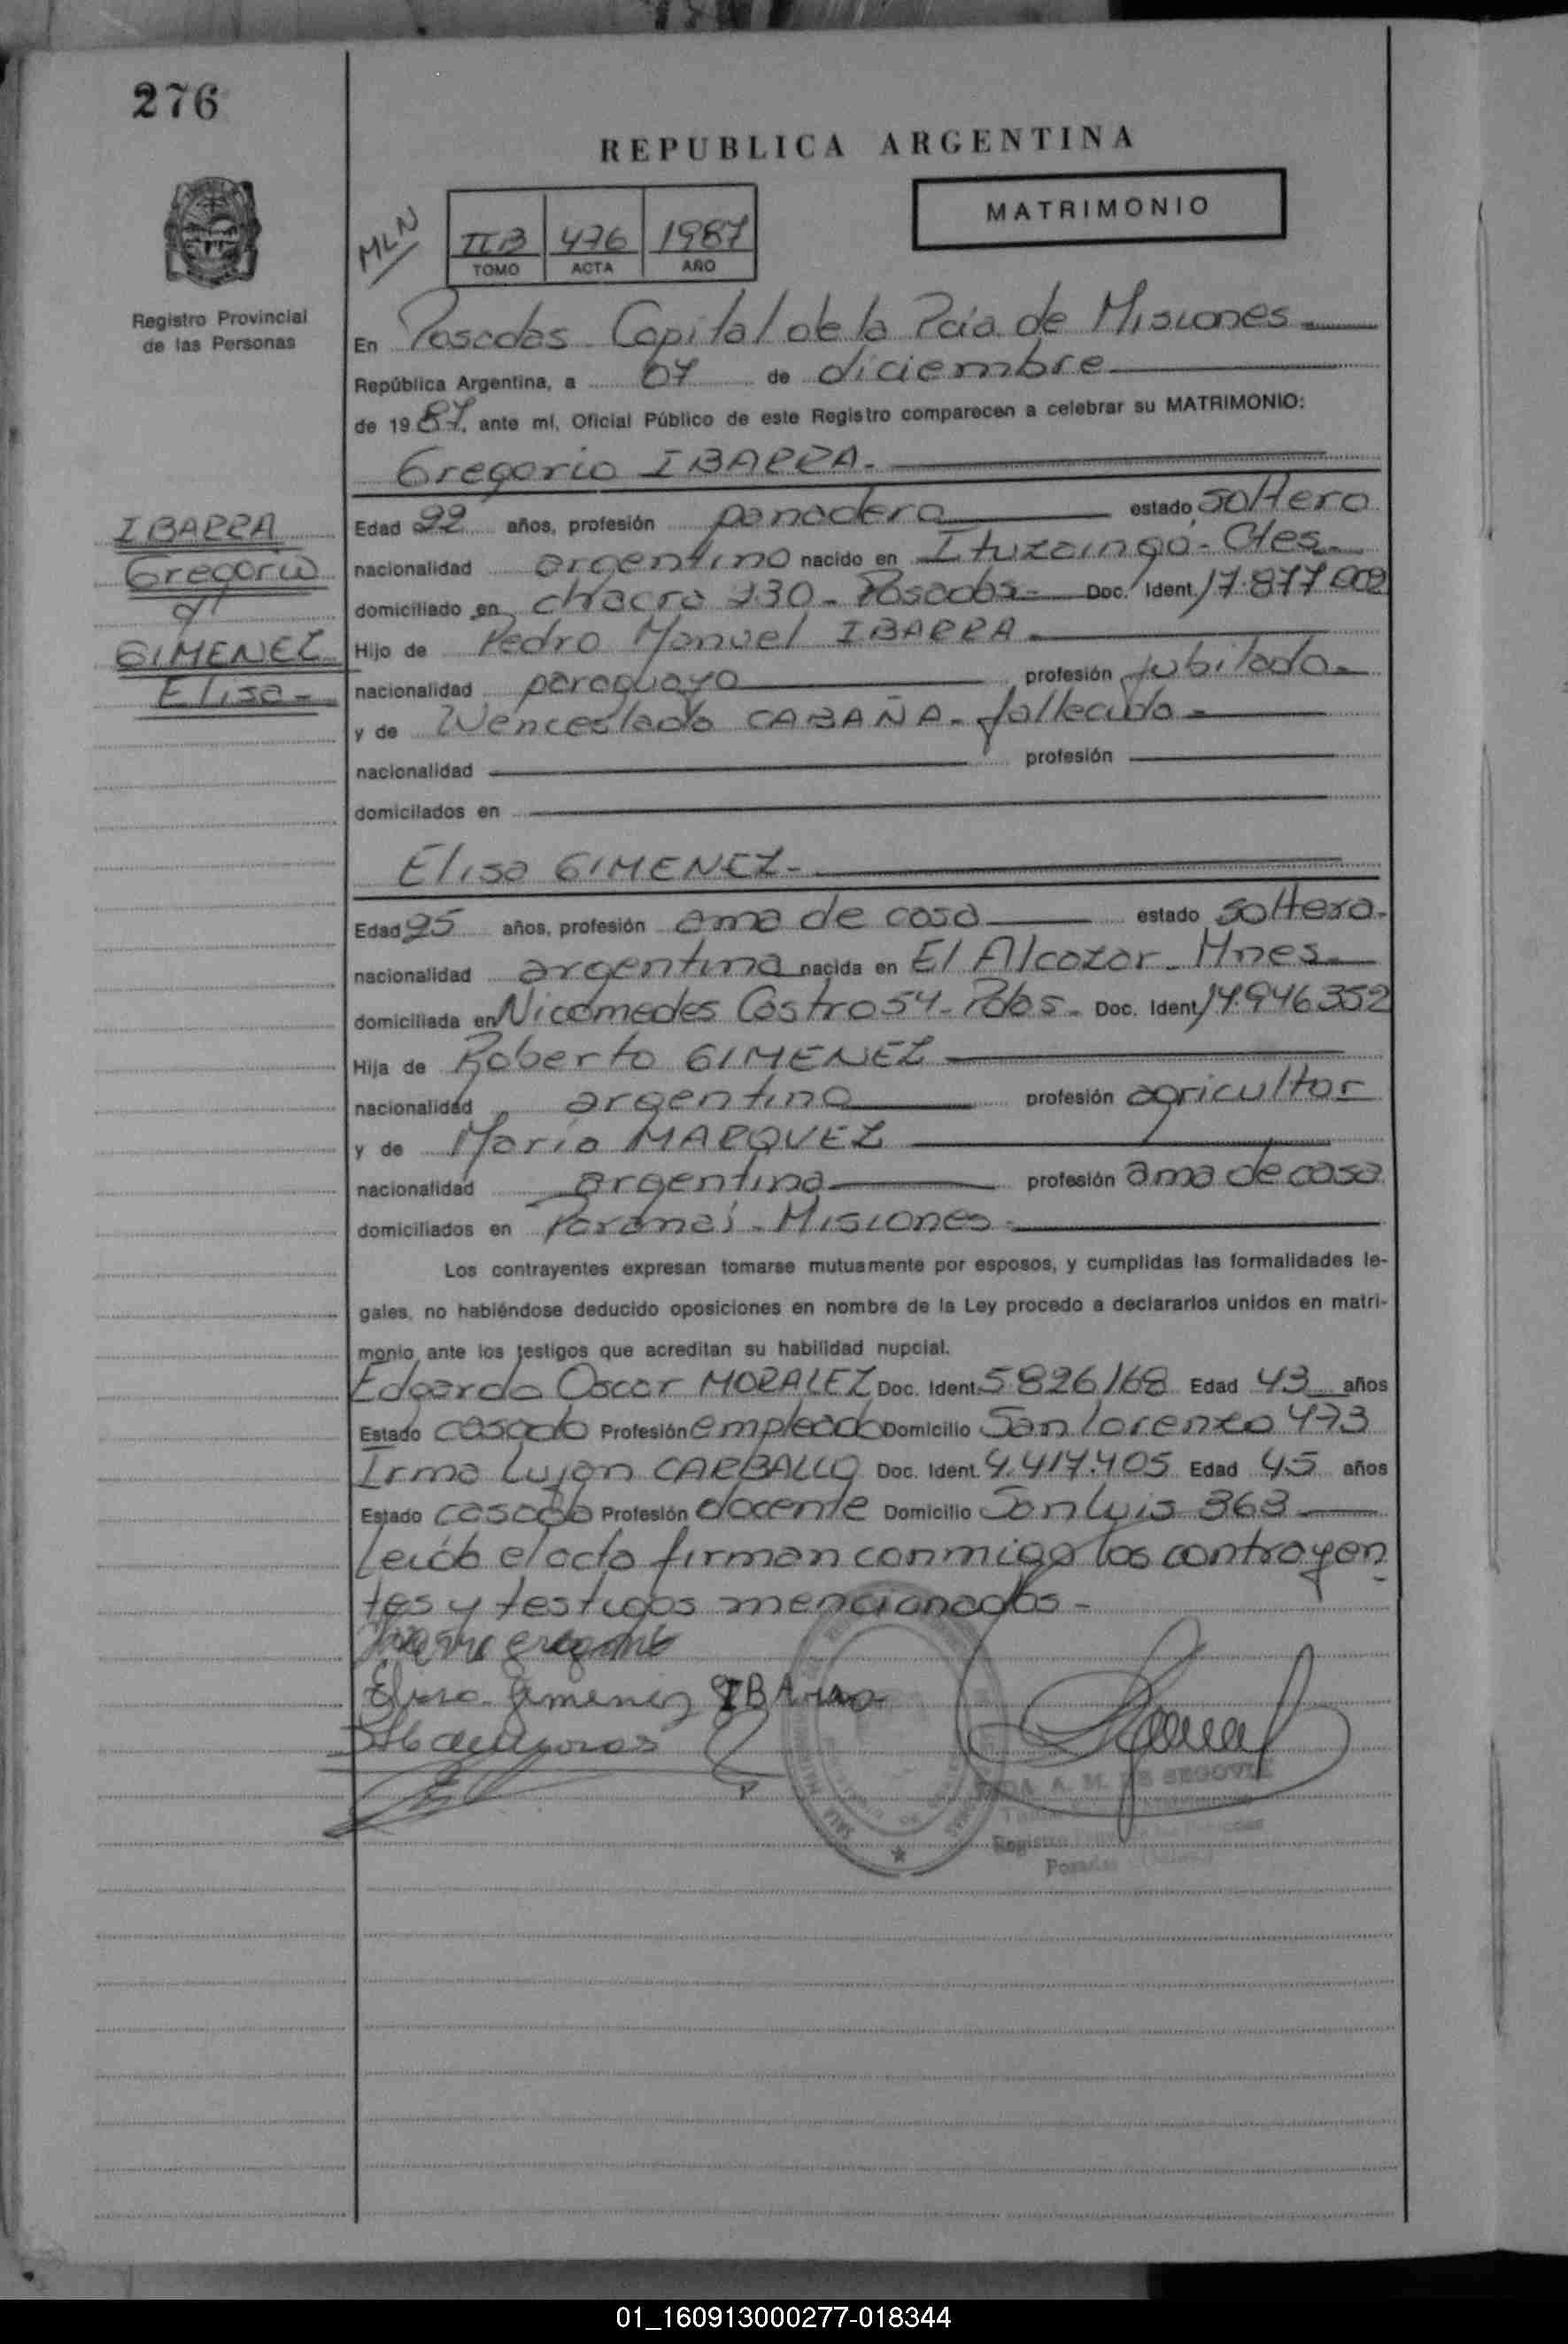 276
REPUBLICA ARGENTINA
MATRIMONIO
MLN
IIB 476 1987
TOMO ACTA AÑO
Registro Provincial
de las Personas
En Posadas - Capital de la Pcia. de Misiones
República Argentina, a 07 de diciembre
de 1987, ante mí, Oficial Público de este Registro comparecen a celebrar su MATRIMONIO:
Gregorio IBARRA.-
IBARRA
Gregorio
y
GIMENEZ
Elisa-
Edad 22 años, profesión panadero estado soltero
nacionalidad argentino nacido en Ituzaingó - Ctes.
domiciliado en chacra 230 - Posadas - Doc. Ident. 17.877.002
Hijo de Pedro Manuel IBARRA
nacionalidad paraguayo profesión jubilado-
y de Wenceslada CABAÑA - fallecida -
nacionalidad profesión
domicilados en
Elisa GIMENEZ-
Edad 25 años, profesión ama de casa estado soltera-
nacionalidad argentina nacida en El Alcazar - Mnes.
domiciliada en Nicomedes Castro 54 - Pdas. Doc. Ident. 14.946.352
Hija de Roberto GIMENEZ
nacionalidad argentino profesión agricultor
y de María MARQUEZ
nacionalidad argentina profesión ama de casa
domiciliados en Paranaí - Misiones -
Los contrayentes expresan tomarse mutuamente por esposos, y cumplidas las formalidades le-
gales, no habiéndose deducido oposiciones en nombre de la Ley procedo a declararlos unidos en matri-
monio ante los testigos que acreditan su habilidad nupcial.
Edgardo Oscar MORALEZ Doc. Ident. 5826168 Edad 43 años
Estado casado Profesión empleado Domicilio San Lorenzo 473
Irma Lujan CARBALLO Doc. Ident. 4.417.405 Edad 45 años
Estado casada Profesión docente Domicilio San Luis 363
Leída el acta firman conmigo los contrayen
tes y testigos mencionados -
Elisa Gimenez
A. M. DE SEGOVIA
Registro
Posadas
01_160913000277-018344